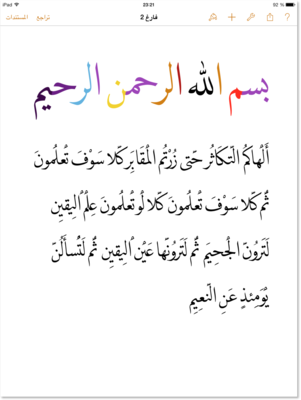 iPad 23:21 92 %
المستندات تراجع فارغ 2
بسم الله الرحمن الرحيم
أَلْهاكُمُ التَّكَاثُر حَتّى زُرْتُم الْمَقَابِرَ كَلا سَوْفَ تَعْلَمونَ
ثُم كَلا سَوْفَ تَعْلَمونَ كَلا لَوْ تَعْلَمونَ عِلْمَ الْيَقِين
لَتَرَوُنّ الْجَحِيمَ ثُم لَتَرَوُنّها عَيْنَ الْيَقِين ثُم لَتُسأَلُنّ
يَوْمَئِذٍ عَنِ النّعِيمِ